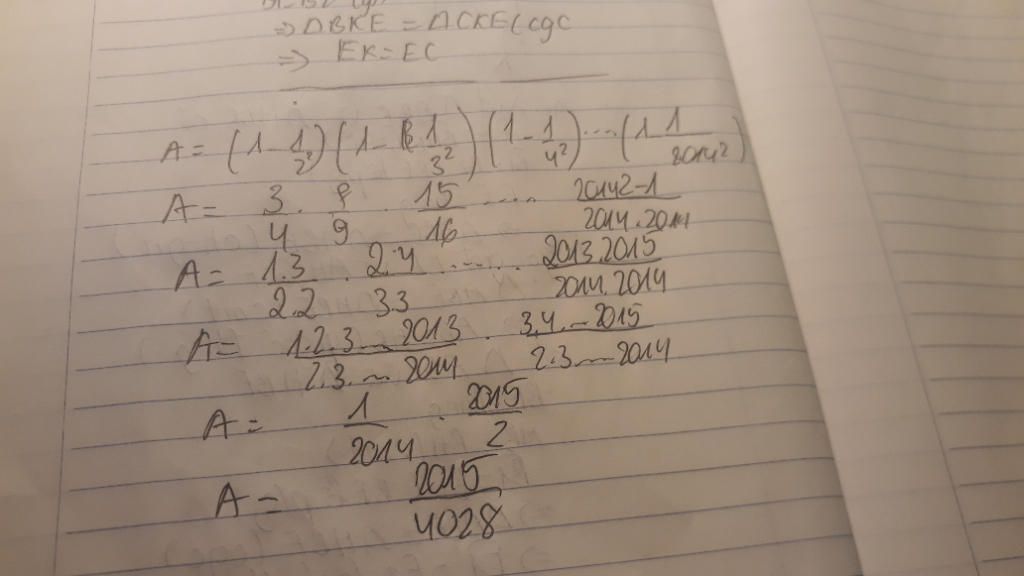 ⇒ ΔBKE = ΔCKE (cgc
⇒ EK = EC
A = (1 - 1/2²) (1 - 1/3²) (1 - 1/4²) .... (1 - 1/2014²)
A = 3/4 . 8/9 . 15/16 .... 2014² - 1/2014.2014
A = 1.3/2.2 . 2.4/3.3 ...... 2013.2015/2014.2014
A = 1.2.3....2013/2.3....2014 . 3.4....2015/2.3....2014
A = 1/2014 . 2015/2
A = 2015/4028